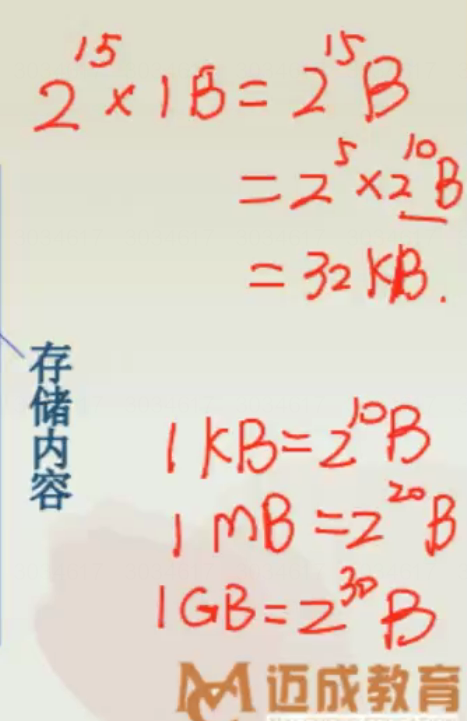 2¹⁵×1B=2¹⁵B
=2⁵×2¹⁰B
=32KB.
存储内容
1KB=2¹⁰B
1MB=2²⁰B
1GB=2³⁰B
迈成教育